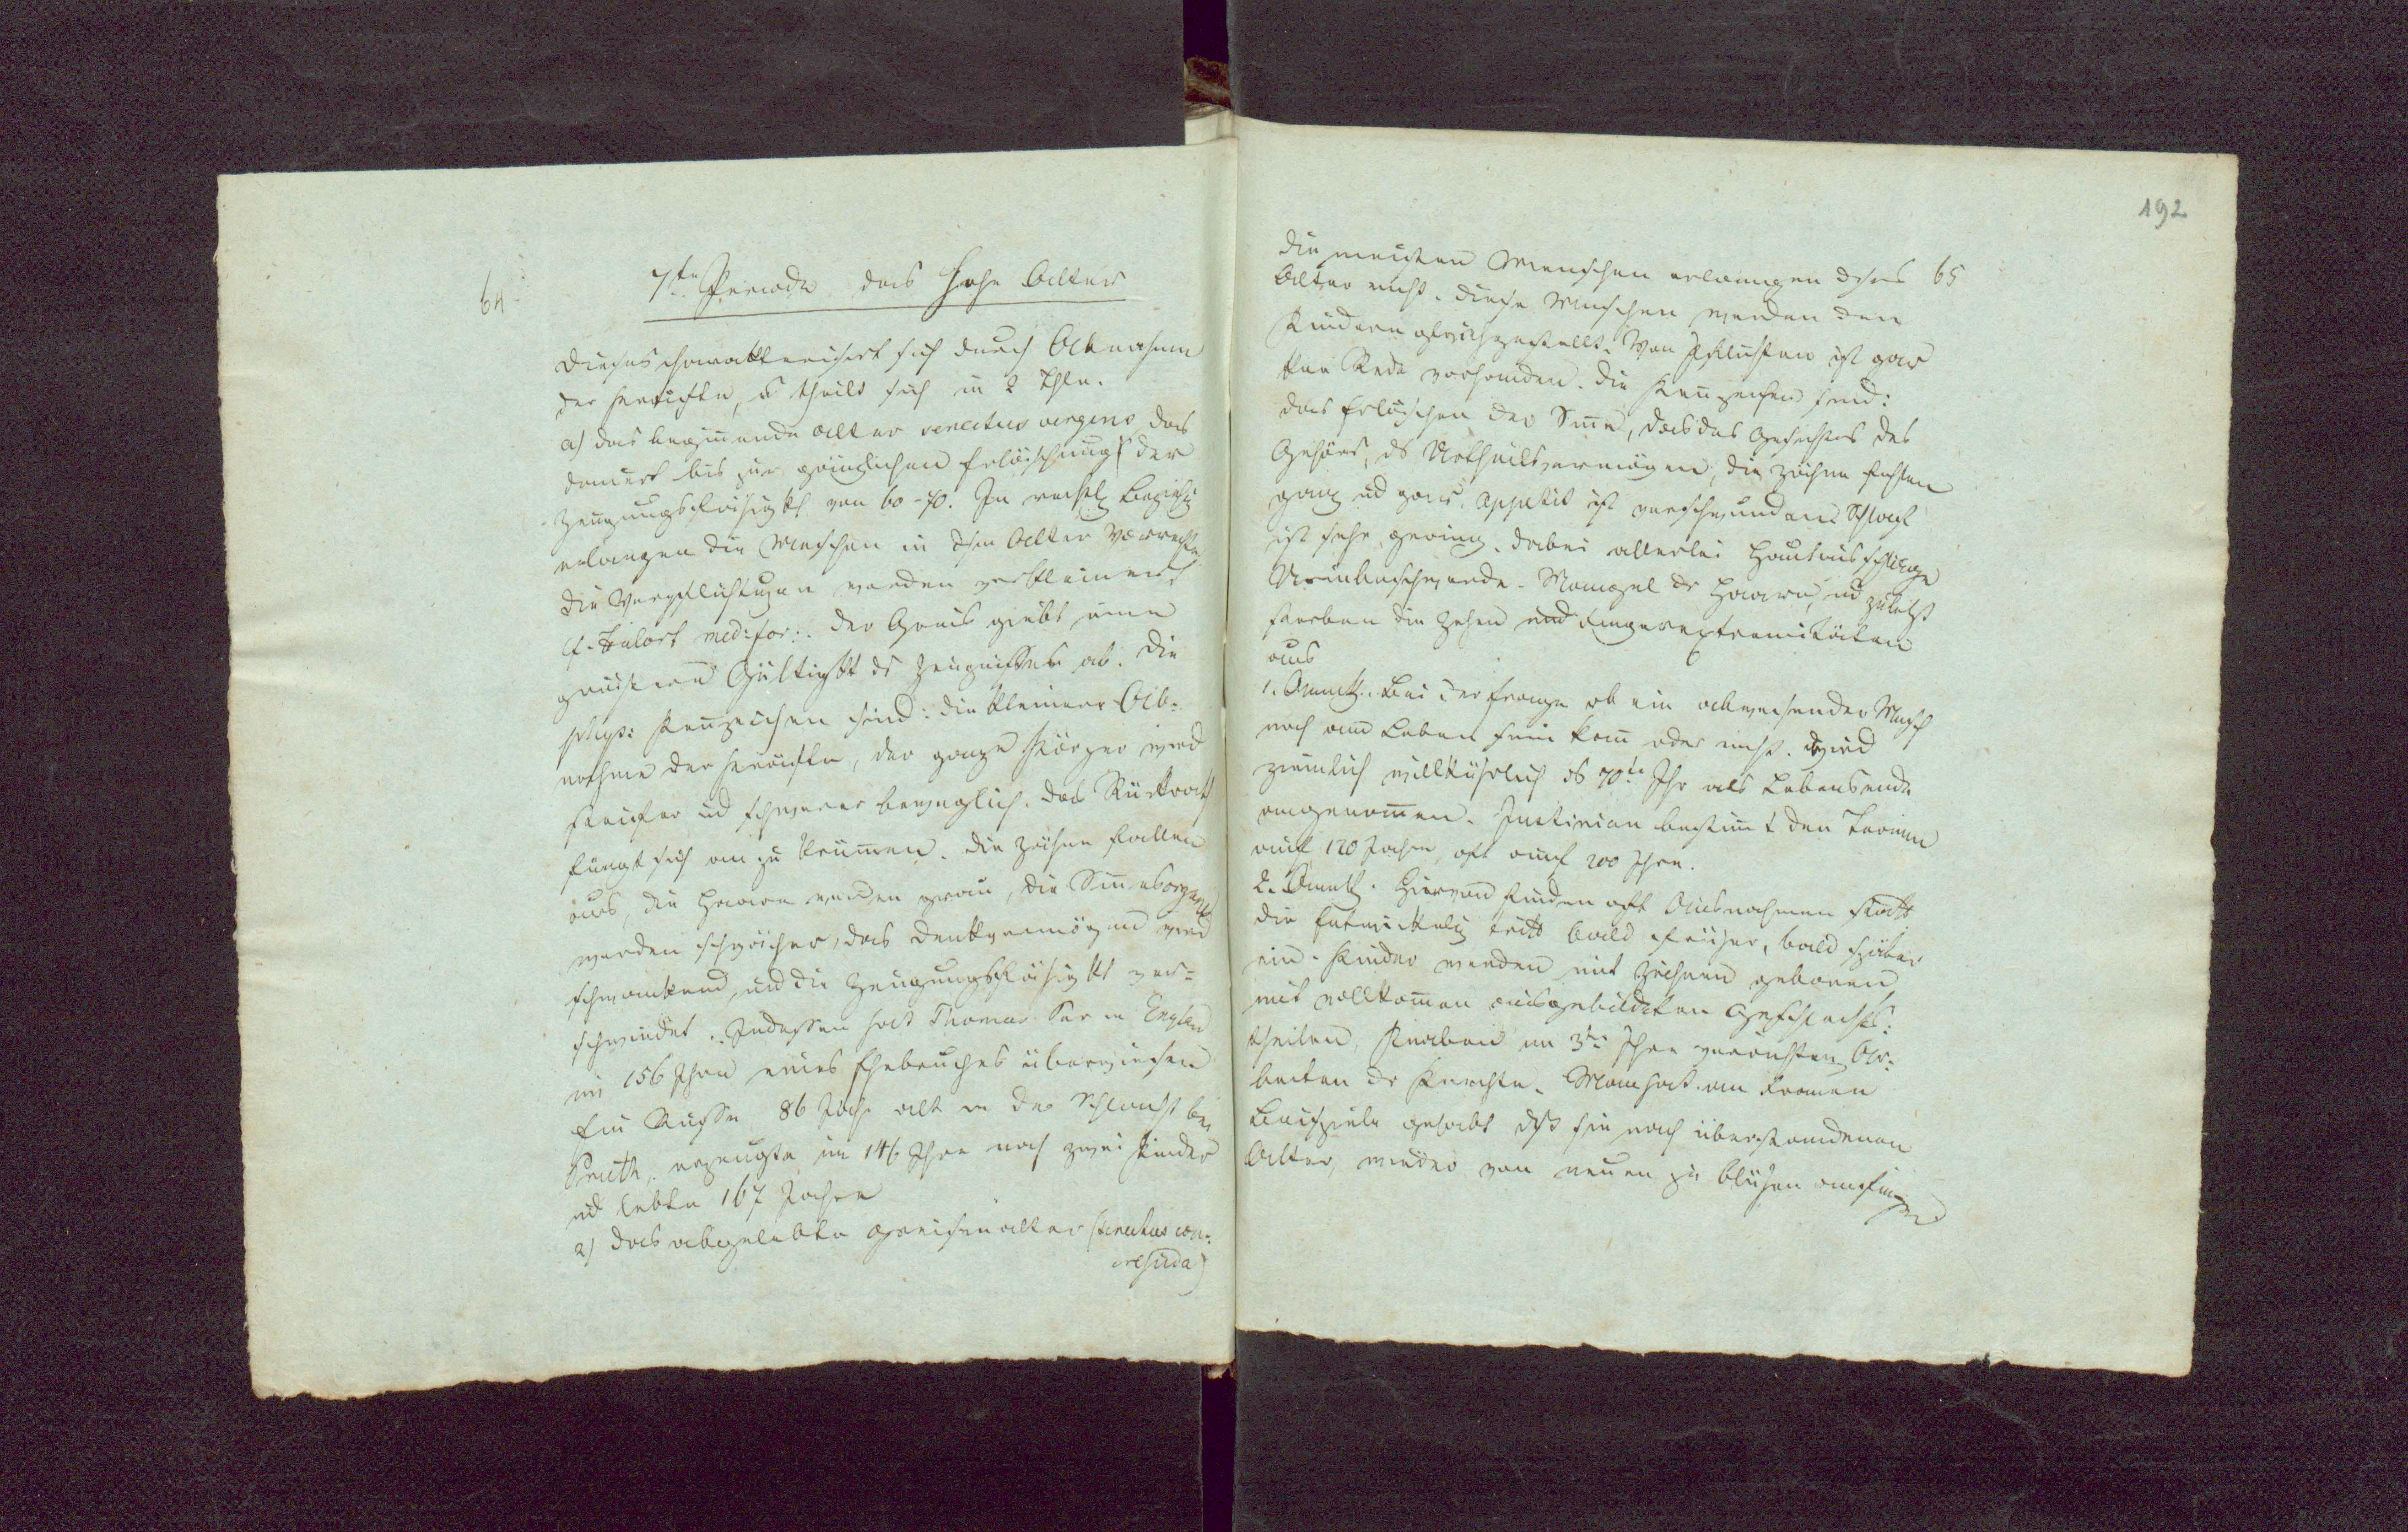 64
7te Periode das hohe Alter
Dieses charakterisirt sich durch Abnahme
der Kräfte, u theilt sich in 2 Thle.
a) das beginnende Alter senectus vergens das
dauert bis zur gänzlichen Erlöschung der
Zeugungsfähigkt. von 60-70. In rechtl Beziehg
erlangen die Menschen in dsm Alter Vorrechte
die Verpflichtugen werden verkleinert
cf. med: for:. der Greis giebt eine
Gültigktt ds Zeugnisses ab. Die
phys: Kennzeichen sind: die kleinere Ab-
nahme der Kräfte, der ganze Körper wird
steifer ud schwerer beweglich. das Rückrath
fängt sich an zu krümmen. Die Zähne fallen
aus, die Haare werden grau, die Sinnesorgane
werden schwächer, das Denkvermögen wird
schwankend, und die Zeugungsfähigkt ver-
schwindet. Indessen hat Thomas Par in England
im 156 Jhre eines Ehebruches überwiesen
Ein Russe 86 Jahr alt in der Schlacht bei
Pruth, erzeugte im 146 Jhre noch zwei Kinder
ud lebte 167 Jahre
2) das abgelebte Greisenalter (senectus
192
Die meisten Menschen erlangen dses 65
Alter nicht. Diese Menschen werden den
Kindern gleichgestellt. Von Pflichten ist gar
kne Rede vorhanden. Die Kennzeichen sind:
das Erlöschen der Sinne, das des Gesichtes des
Gehörs, ds Urtheilsvermögens, die Zähne fehlen
ganz ud gar. Appetit ist verschwunden. Schlaf
ist sehr gering. dabei allerlei Hautausschläge
Urinbeschwerde. Mangel dr Haare, ud zuletzt
sterben die Zehen und Fingerextremitäten
aus
1. Anmkg. Bei der Frage ob ein abwesender Mensch
noch am Leben sein kann oder nicht. wird
ziemlich willkührlich ds 70te Jhr als Lebensende
angenommen. Justinian bestimmt den Termin
auf 120 Jahre, oft auf 200 Jhre.
2. Anmkg. Hiervon finden oft Ausnahmen statt
die Entwickelg tritt bald früher, bald später
ein. Kinder werden mit Zähnen geboren
mit vollkommen ausgebildeten Geschlechts-
theilen. Knaben im 3ten Jhre verrichten Ar-
beiten dr Knechte. Man hat an Frauen
Beispiele gehabt dß sie nach überstandenem
Alter, wieder von neuen zu blühen anfingen